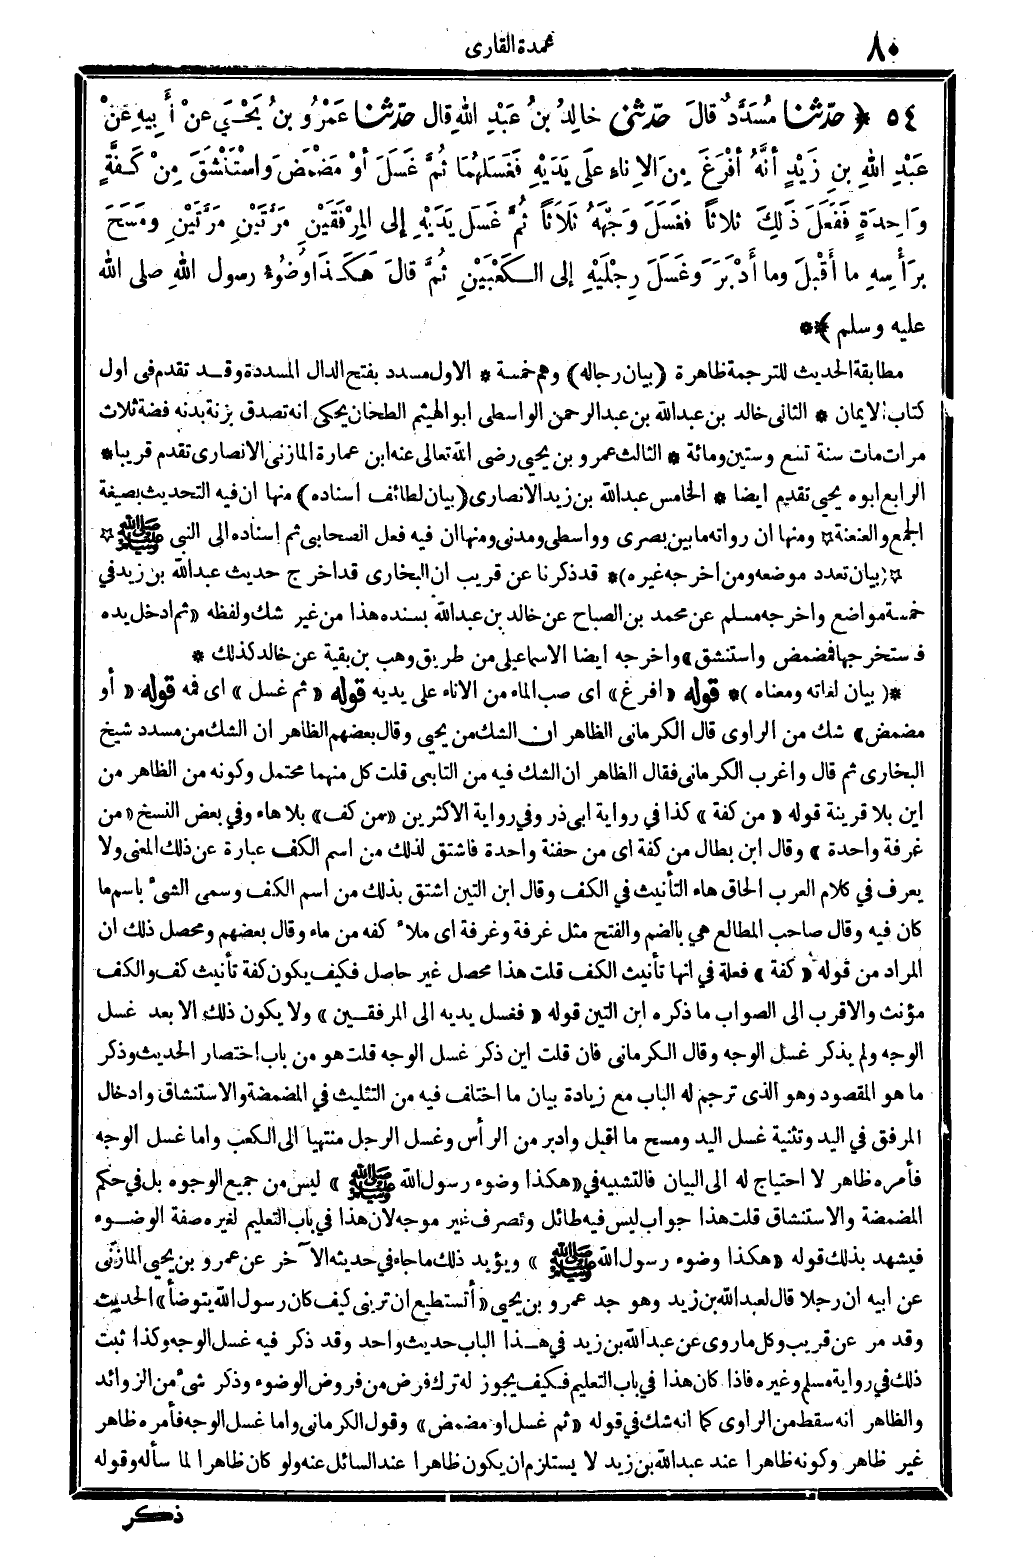 ٨٠
عمدة القارى
٥٤ ﴿ حدّثنا مُسَدَّدٌ قالَ حدّثنى خالِدُ بنُ عَبْدِ اللهِ قال حدّثنا عَمْرُو بنُ يَحْيَى عنْ أَبيهِ عَنْ
عَبْدِ اللهِ بنِ زَيْدٍ أنَّهُ أفْرَغَ مِنَ الإناءِ علَى يَدَيْهِ فَغَسَلهُمَا ثُمَّ غَسَلَ أوْ مَضْمَضَ وَاسْتَنْشَقَ مِنْ كَفَّةٍ
وَاحِدَةٍ فَفَعَلَ ذَلِكَ ثلاثاً فَغَسَلَ وَجْهَهُ ثَلَاثاً ثُمَّ غَسَلَ يَدَيْهِ إلى المِرْفَقَيْنِ مَرَّتَيْنِ مَرَّتَيْنِ ومَسَحَ
بِرَأْسِهِ ما أَقْبَلَ وما أدْبَرَ وَغَسَلَ رِجْلَيْهِ إلى الكَعْبَيْنِ ثُمَّ قالَ هَكَذَا وُضُوءُ رسول اللهِ صلى الله
عليه وسلم ﴾*
مطابقة الحديث للترجمة ظاهرة (بيان رجاله) وهم خمسة * الاول مسدد بفتح الدال المسددة وقد تقدم فى اول
كتاب الايمان * الثانى خالد بن عبدالله بن عبدالرحمن الواسطى ابو الهيثم الطحان يحكى انه تصدق بزنة بدنه فضة ثلاث
مرات مات سنة تسع وستين ومائة * الثالث عمرو بن يحيى رضى الله تعالى عنه ابن عمارة المازنى الانصارى تقدم قريبا *
الرابع ابوه يحيى تقدم ايضا * الخامس عبدالله بن زيد الانصارى (بيان لطائف اسناده) منها ان فيه التحديث بصيغة
الجمع والعنعنة * ومنها ان رواته ما بين بصرى وواسطى ومدنى ومنها ان فيه فعل الصحابى ثم اسناده الى النبى ﷺ *
* (بيان تعدد موضعه ومن اخرجه غيره) * قد ذكرنا عن قريب ان البخارى قد اخرج حديث عبدالله بن زيد فى
خمسة مواضع واخرجه مسلم عن محمد بن الصباح عن خالد بن عبدالله بسنده هذا من غير شك ولفظه «ثم ادخل يده
فاستخرجها فمضمض واستنشق» واخرجه ايضا الاسماعيلى من طريق وهب بن بقية عن خالد كذلك *
*( بيان لغاته ومعناه )* قوله «افرغ» اى صب الماء من الاناء على يديه قوله «ثم غسل» اى فمه قوله « أو
مضمض» شك من الراوى قال الكرمانى الظاهر ان الشك من يحيى وقال بعضهم الظاهر ان الشك من مسدد شيخ
البخارى ثم قال واغرب الكرمانى فقال الظاهر ان الشك فيه من التابعى قلت كل منهما محتمل وكونه من الظاهر من
اين بلا قرينة قوله « من كفة » كذا في رواية ابى ذر وفي رواية الاكثرين «من كف» بلا هاء وفي بعض النسخ «من
غرفة واحدة » وقال ابن بطال من كفة اى من حفنة واحدة فاشتق لذلك من اسم الكف عبارة عن ذلك المعنى ولا
يعرف في كلام العرب الحاق هاء التأنيث في الكف وقال ابن التين اشتق بذلك من اسم الكف وسمى الشىء باسم ما
كان فيه وقال صاحب المطالع هي بالضم والفتح مثل غرفة وغرفة اى ملاء كفه من ماء وقال بعضهم ومحصل ذلك ان
المراد من قوله « كفة » فعلة في انها تأنيث الكف قلت هذا محصل غير حاصل فكيف يكون كفة تأنيث كف والكف
مؤنث والاقرب الى الصواب ما ذكره ابن التين قوله « فغسل يديه الى المرفقين » ولا يكون ذلك الا بعد غسل
الوجه ولم يذكر غسل الوجه وقال الكرمانى فان قلت اين ذكر غسل الوجه قلت هو من باب اختصار الحديث وذكر
ما هو المقصود وهو الذى ترجم له الباب مع زيادة بيان ما اختلف فيه من التثليث في المضمضة والاستنشاق وادخال
المرفق في اليد وتثنية غسل اليد ومسح ما اقبل وادبر من الرأس وغسل الرجل منتهيا الى الكعب واما غسل الوجه
فأمره ظاهر لا احتياج له الى البيان فالتشبيه في «هكذا وضوء رسول الله ﷺ » ليس من جميع الوجوه بل في حكم
المضمضة والاستنشاق قلت هذا جواب ليس فيه طائل وتصرف غير موجه لان هذا في باب التعليم لغيره صفة الوضوء
فيشهد بذلك قوله «هكذا وضوء رسول الله ﷺ » ويؤيد ذلك ما جاء في حديثه الآخر عن عمرو بن يحيى المازنى
عن ابيه ان رجلا قال لعبدالله بن زيد وهو جد عمرو بن يحيى «أتستطيع ان ترينى كيف كان رسول الله يتوضأ» الحديث
وقد مر عن قريب وكل ما روى عن عبدالله بن زيد في هذا الباب حديث واحد وقد ذكر فيه غسل الوجه وكذا ثبت
ذلك في رواية مسلم وغيره فاذا كان هذا في باب التعليم فكيف يجوز له ترك فرض من فروض الوضوء وذكر شىء من الزوائد
والظاهر انه سقط من الراوى كما انه شك في قوله «ثم غسل او مضمض» وقول الكرمانى واما غسل الوجه فأمره ظاهر
غير ظاهر وكونه ظاهرا عند عبدالله بن زيد لا يستلزم ان يكون ظاهرا عند السائل عنه ولو كان ظاهرا لما سأله وقوله
ذكر